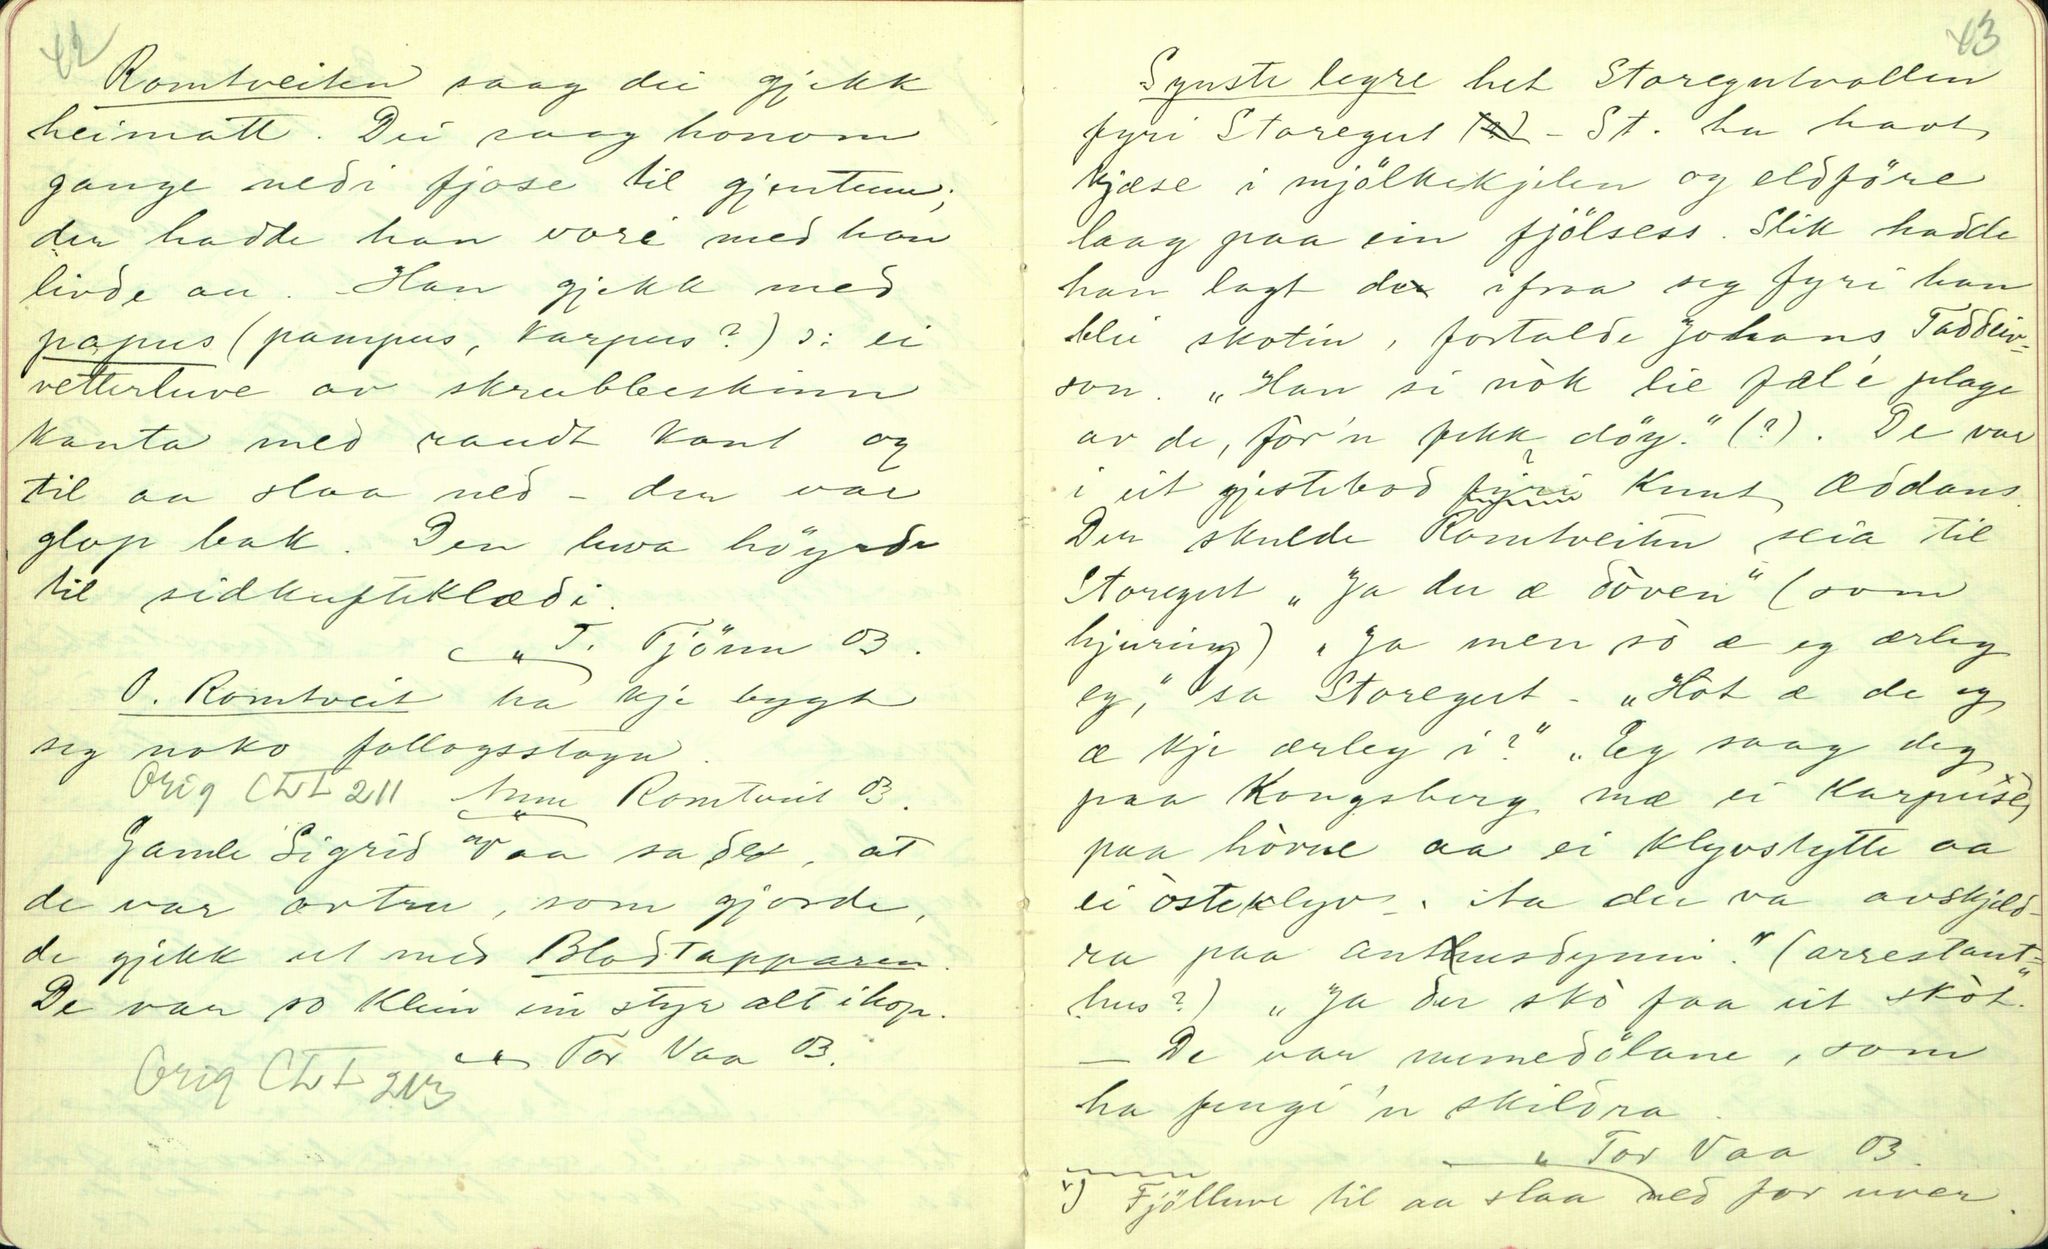 42
Romtveiten saag dei gjekk
heimatt. Dei saag honom
gange nedi fjose til gjentunn;
der hadde han vori med han
livde au. Han gjekk med
papus (pampus, karpus?) ɔ: ei
vetterluve av skrubbeskinn
kanta med raudt kant og
til aa slaa ned – den var
glop bak. Den luva höyrde
til sidkufteklædi.
T. Tjönn 03.
O. Romtveit ha kje bygt
seg noko follogsstogu.
Orig CLI 211 Anne Romtveit 03.
Gamle Sigrid Vaa sa det, at
de var avtru, som gjorde,
de gjekk ut med Blodtapparen.
De var so klein ein styr alt ihop.
Tor Vaa 03.
Orig CLI 213
43
Synste legre het Storegutvollen
fyri Storegut – St. ha havt
kjæse i mjölkekjelen og eldföre
laag paa ein fjölsess. Slik hadde
han lagt de ifraa seg fyri han
blei skotin, fortalde Johans Taddeiv-
son. „Han si nòk lie fæl'e plage
av de, för'n fekk döy." (?). De var
i eit gjestebod fyri Knut Æddans.
Der skulde Romtveiten seia til
Storegut „Ja du æ döven" (som
hjuring) „Ja men sò æ eg ærleg
eg," sa Storegut – „Hot æ de eg
æ kje ærleg i?" „Eg saag deg
paa Kongsberg mæ ei Karpus x)
paa hövue aa ei klyvstytte aa
ei òsteklyv. Aa du va avskjeld-
ra paa anshusdynni." (arrestant-
hus?) „Ja du skò faa eit skòt."
– De var numedölane, som
ha fengi 'n skildra.
Tor Vaa 03.
x) Fjölluve til aa slaa ned for uver.